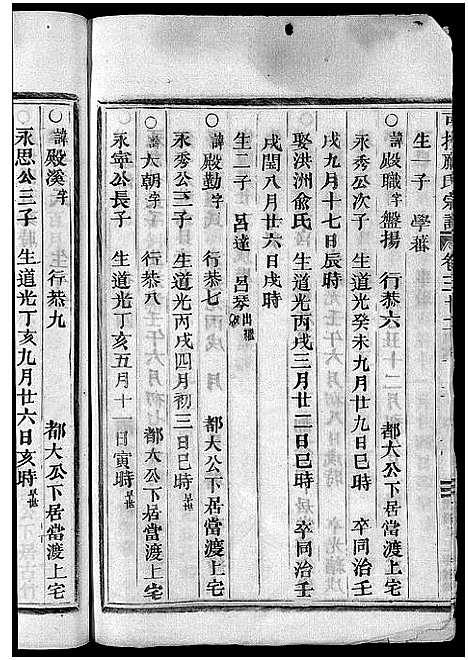 氏宗譜 卷三十二
生一子 學
○諱殿職字盤揚 行恭六 都大公下居當渡上宅
永秀公次子 生道光癸未九月廿九日巳時 卒同治壬
戌九月十七日辰時
娶洪洲俞氏 生道光丙戌三月廿二日巳時 卒同治壬
戌閏八月廿六日戌時
生二子 呂達 呂琴出繼
○諱殿勤字 行恭七 都大公下居當渡上宅
永秀公三子 生道光丙戌四月初三日巳時早世
○諱大朝字 行恭八 都大公下居當渡上宅
永寧公長子 生道光丁亥五月十一日寅時早世
○諱殿溪字 行恭九 都大公下居當渡上宅
永思公三子 生道光丁亥九月廿六日亥時早世